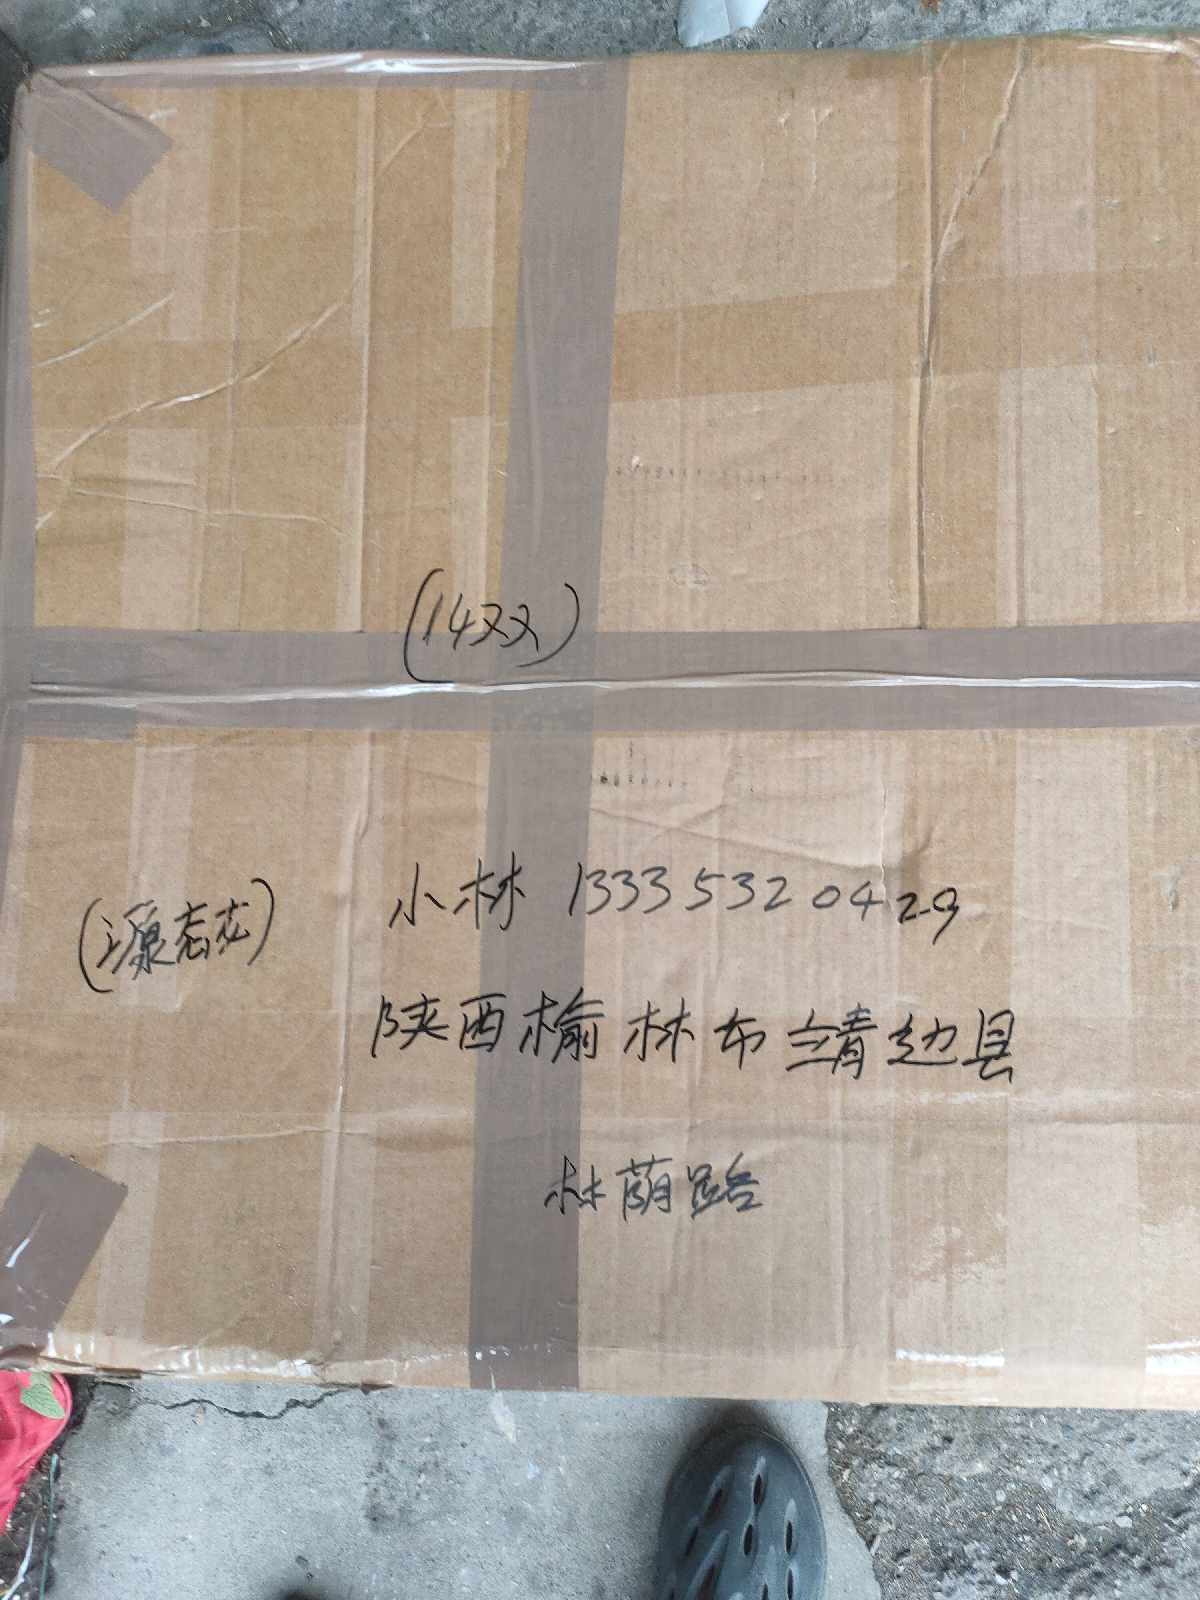 (14双)
小林 13335320429
陕西榆林市靖边县
林荫路